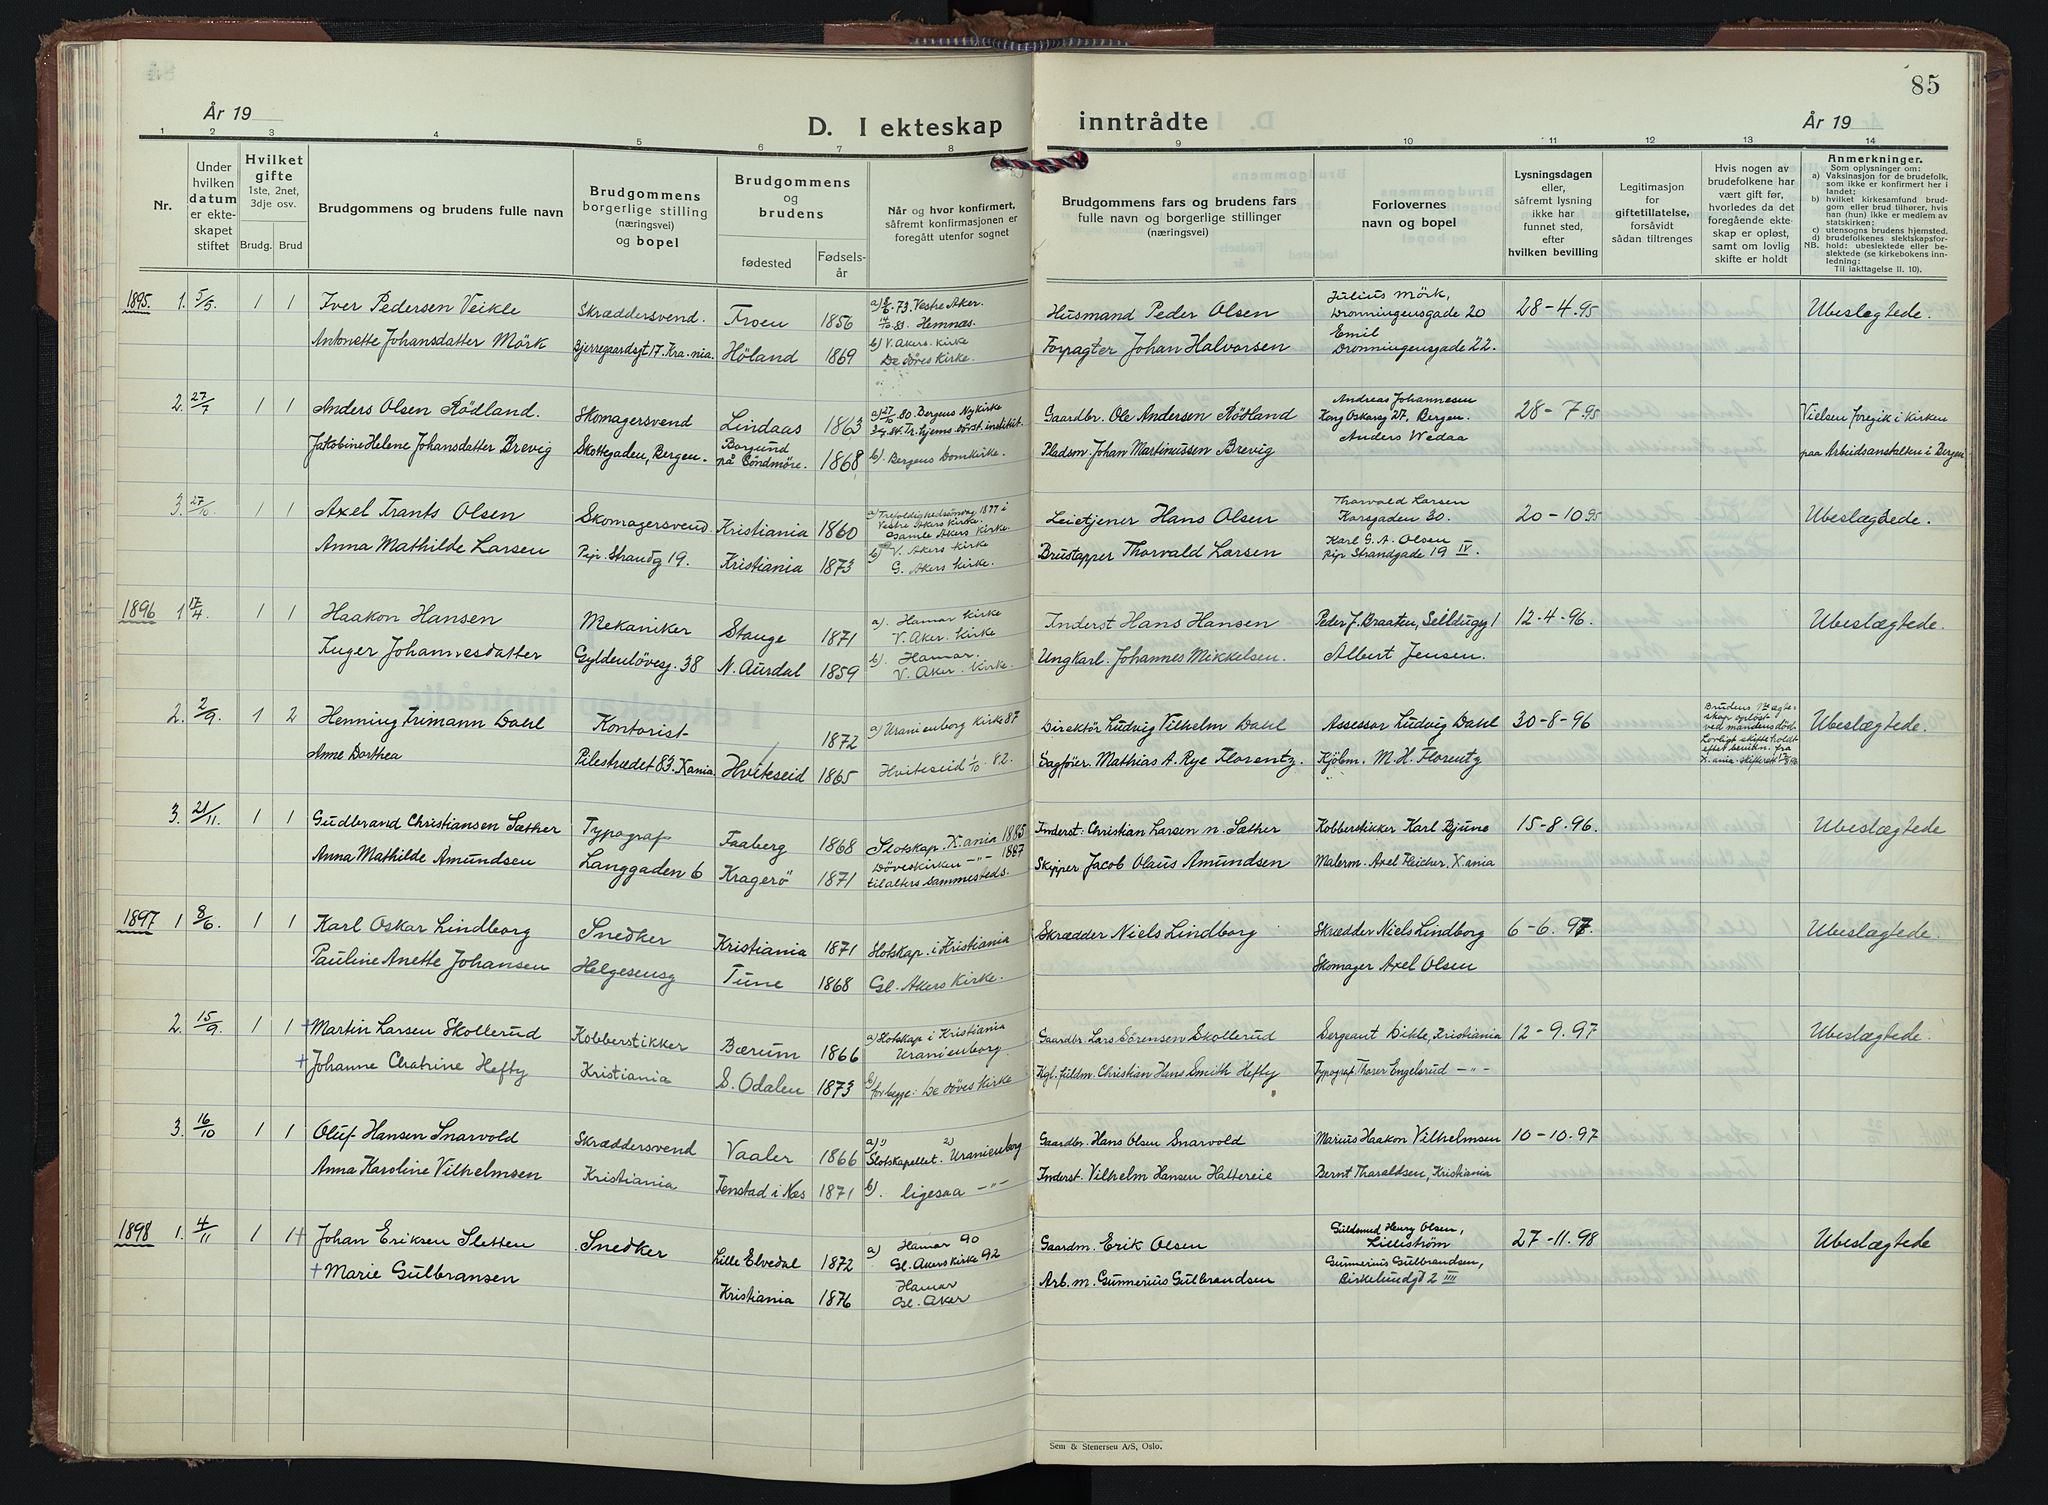 85
År 19
D. I ekteskap inntrådte
År 19
1 2 3 4 5 6 7 8 9 10 11 12 13 14
Nr.
Under hvilken datum er ekteskapet stiftet
Hvilket gifte
1ste, 2net, 3dje osv.
Brudg. Brud
Brudgommens og brudens fulle navn
Brudgommens borgerlige stilling (næringsvei) og bopel
Brudgommens og brudens
fødested
Fødselsår
Når og hvor konfirmert, såfremt konfirmasjonen er foregått utenfor sognet
Brudgommens fars og brudens fars fulle navn og borgerlige stillinger (næringsvei)
Forlovernes navn og bopel
Lysningsdagen eller, såfremt lysning ikke har funnet sted, efter hvilken bevilling
Legitimasjon for giftetillatelse, forsåvidt sådan tiltrenges
Hvis nogen av brudefolkene har vært gift før, hvorledes da det foregående ekteskap er opløst, samt om lovlig skifte er holdt
Anmerkninger.
Som oplysninger om:
a) Vaksinasjon for de brudefolk, som ikke er konfirmert her i landet;
b) hvilket kirkesamfund brudgom eller brud tilhører, hvis han (hun) ikke er medlem av statskirken;
c) utensogns brudens hjemsted.
d) brudefolkenes slektskapsforhold: ubeslektede eller beslektede (se kirkebokens innledning:
NB.
Til iakttagelse II. 10).
1895. 1. 5/5 1 1 Iver Pedersen Veikle Skræddersvend. Froen 1856 a) 8/6.73 Vestre Aker. 81. Hemnæs. Husmand Peder Olsen Julius Mörk, Dronningensgade 20 28-4.95 Ubeslægtede.
Antonette Johansdatter Mörk Bjerregaardsgt 17. Kra-nia. Höland 1869 b) V. Akers. Kirke De døves Kirke. Forpagter Johan Halvorsen Emil Dronningensgade 22.
2. 27/7 1 1 Anders Olsen Rödland. Skomagersvend Lindaas 1863 a) 80. Bergens Nykirke 84. Tr.hjems dövst. institut. Gaardbr. Ole Andersen Rödland Andreas Johannesen Kong Oskarsg 27. Bergen. 28-7.95 Vielsen foregik i Kirken
Jakobine Helene Johansdatter Brevig Skottegaden, Bergen. Borgund på Söndmöre. 1868 b). Bergens Domkirke. Pladsm. Johan Martinussen Brevig Anders Wedaa paa Arbeidsanstalten i Bergen
3. 27/10 1 1 Axel Frants Olsen Skomagersvend Kristiania 1860 a) Trefoldighedssöndag 1877 i Vestre Akers Kirke. Gamle Akers Kirke. Leietjener Hans Olsen Thorvald Larsen Korsgaden 30. 20-10.95 Ubeslægtede.
Anna Mathilde Larsen Pip. Strandg 19. Kristiania 1873 b) V. Akers Kirke G. Akers Kirke. Brustapper Thorvald Larsen Karl G. A. Olsen Pip Strandgade 19 IV.
1896 1 17/4 1 1 Haakon Hansen Mekaniker Stange 1871 a). Hamar Kirke V. Aker. Kirke Inderst Hans Hansen Peder J. Braaten, Selldugsg 1 12-4-96. Ubeslægtede.
Inger Johannesdatter Gyldenlövesg. 38 N. Aurdal 1859 b). Hamar. V. Aker. Kirke. Ungkarl. Johannes Mikkelsen. Albert Jensen.
2. 2/9. 1 2 Henning Frimann Dahl Kontorist 1872 a) Uranienborg Kirke 87 Direktör Ludvig Vilhelm Dahl Assessor Ludvig Dahl 30-8-96 Brudens 1ste ægteskap oplöst ved mandens död. Lovligt skifte holdt efter bevidn. fra X.ania. skifterett Ubeslægtede.
Anne Dorthea Pilestrædet 83. Xania Hviteseid 1865 Hviteseid 1/10.82. Sagförer. Mathias A. Rye Florentz. Kjöbm. M. H. Florentz
3. 21/11. 1 1 Gudbrand Christiansen Sæther Typograf Faaberg 1868 Slotskap. X.ania 1885 Inderst. Christian Larsen n. Sæther Kobberstikker Karl Bjune 15-8.96. Ubeslægtede
Anna Mathilde Amundsen Langgaden 6 Kragerö 1871 Döveskirken -"- 1887 tilalters sammesteds. Skipper Jacob Olaus Amundsen Malerm. Axel Fleicher. X.ania
1897 1 8/6. 1 1 Karl Oskar Lindborg Snedker Kristiania 1871 Slotskap. i Kristiania Skrædder Niels Lindborg Skrædder Niels Lindborg 6-6.97. Ubeslægtede.
Pauline Anette Johansen Helgesensg Tune 1868 Gl. Akers Kirke. Skomager Axel Olsen
2. 15/9. 1 1 + Martin Larsen Skollerud Kobberstikker Bærum 1866 a) Slotskap i Kristiania Uranienborg. Gaardbr. Lars Sörensen Skollerud Sergeant Dikle, Kristiania 12-9.97 Ubeslægtede.
+ Johanne Chatrine Hefty Kristiania S. Odalen 1873 for begge: De döves Kirke Kgl. fuldm. Christian Hans Smith Hefty Typograf Thorer Engelsrud -"-
3. 16/10 1 1 Oluf Hansen Snarvold Skræddersvend Vaaler 1866 a) 1) Slotskapellet. 2) Uranienborg Gaardbr. Hans Olsen Snarvold Marius Haakon Vilhelmsen 10-10.97 Ubeslægtede.
Anna Karoline Vilhelmsen Kristiania Tenstad i Næs 1871 b). ligesaa -"- Inderst. Vilhelm Hansen Haltereie Bernt Tharaldsen, Kristiania
1898 1. 4/11 1 1 + Johan Eriksen Sletten Snedker Lille Elvedal 1872 a) Hamar 90 Gl. Akers Kirke 92 Gaardm. Erik Olsen Guldsmed Henry Olsen, Lilleström 27-11.98 Ubeslægtede
+ Marie Gulbransen Kristiania 1876 Hamar Gl. Aker Arb. m. Gunnerius Gulbrandsen Gunnerius Gulbrandsen, Birkelundgt 2 IIII
Sem & Stenersen A/S, Oslo.